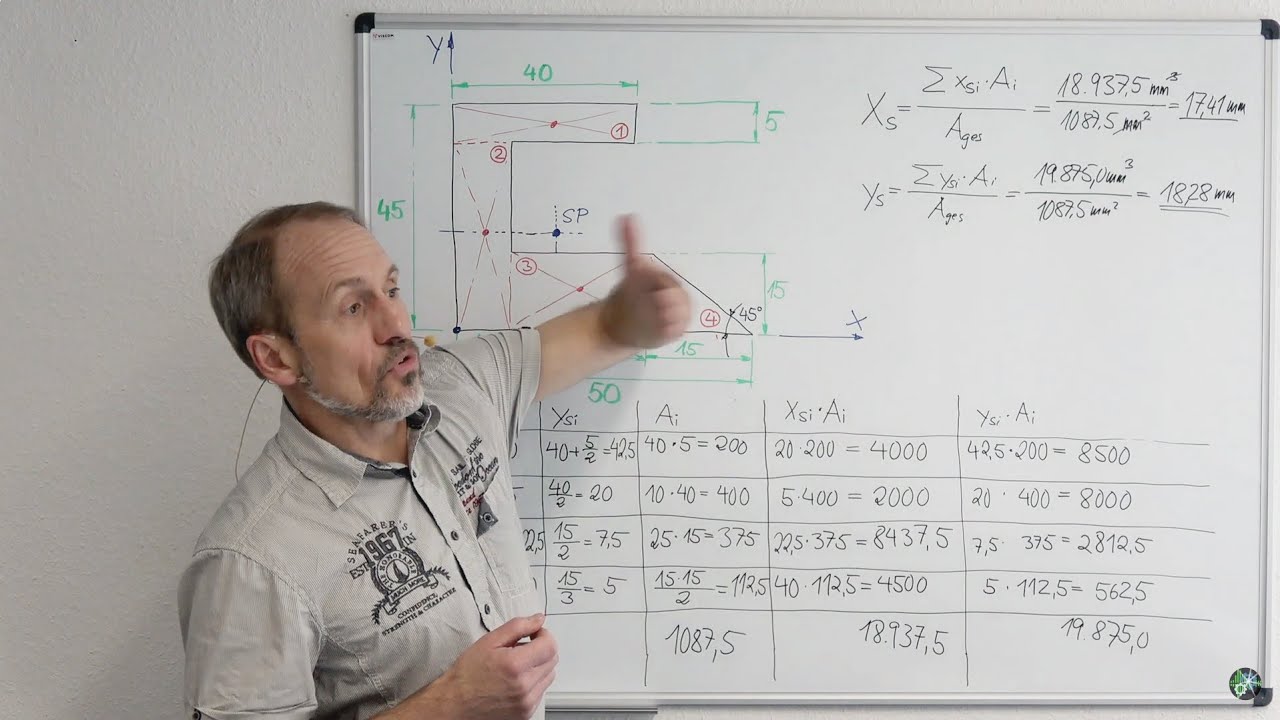 Y
40
5
①
②
45
SP
③
15
④
45°
X
15
50
Xs = Σ xsi · Ai / Ages = 18.937,5 mm³ / 1087,5 mm² = 17,41 mm
ys = Σ ysi · Ai / Ages = 19.875,0 mm³ / 1087,5 mm² = 18,28 mm
ysi Ai xsi · Ai ysi · Ai
40 + 5/2 = 42,5 40 · 5 = 200 20 · 200 = 4000 42,5 · 200 = 8500
40/2 = 20 10 · 40 = 400 5 · 400 = 2000 20 · 400 = 8000
22,5 15/2 = 7,5 25 · 15 = 375 22,5 · 375 = 8437,5 7,5 · 375 = 2812,5
15/3 = 5 15·15/2 = 112,5 40 · 112,5 = 4500 5 · 112,5 = 562,5
1087,5 18.937,5 19.875,0
SEAFARER'S
1967
CONFIDENCE,
STRENGTH & CHARACTER